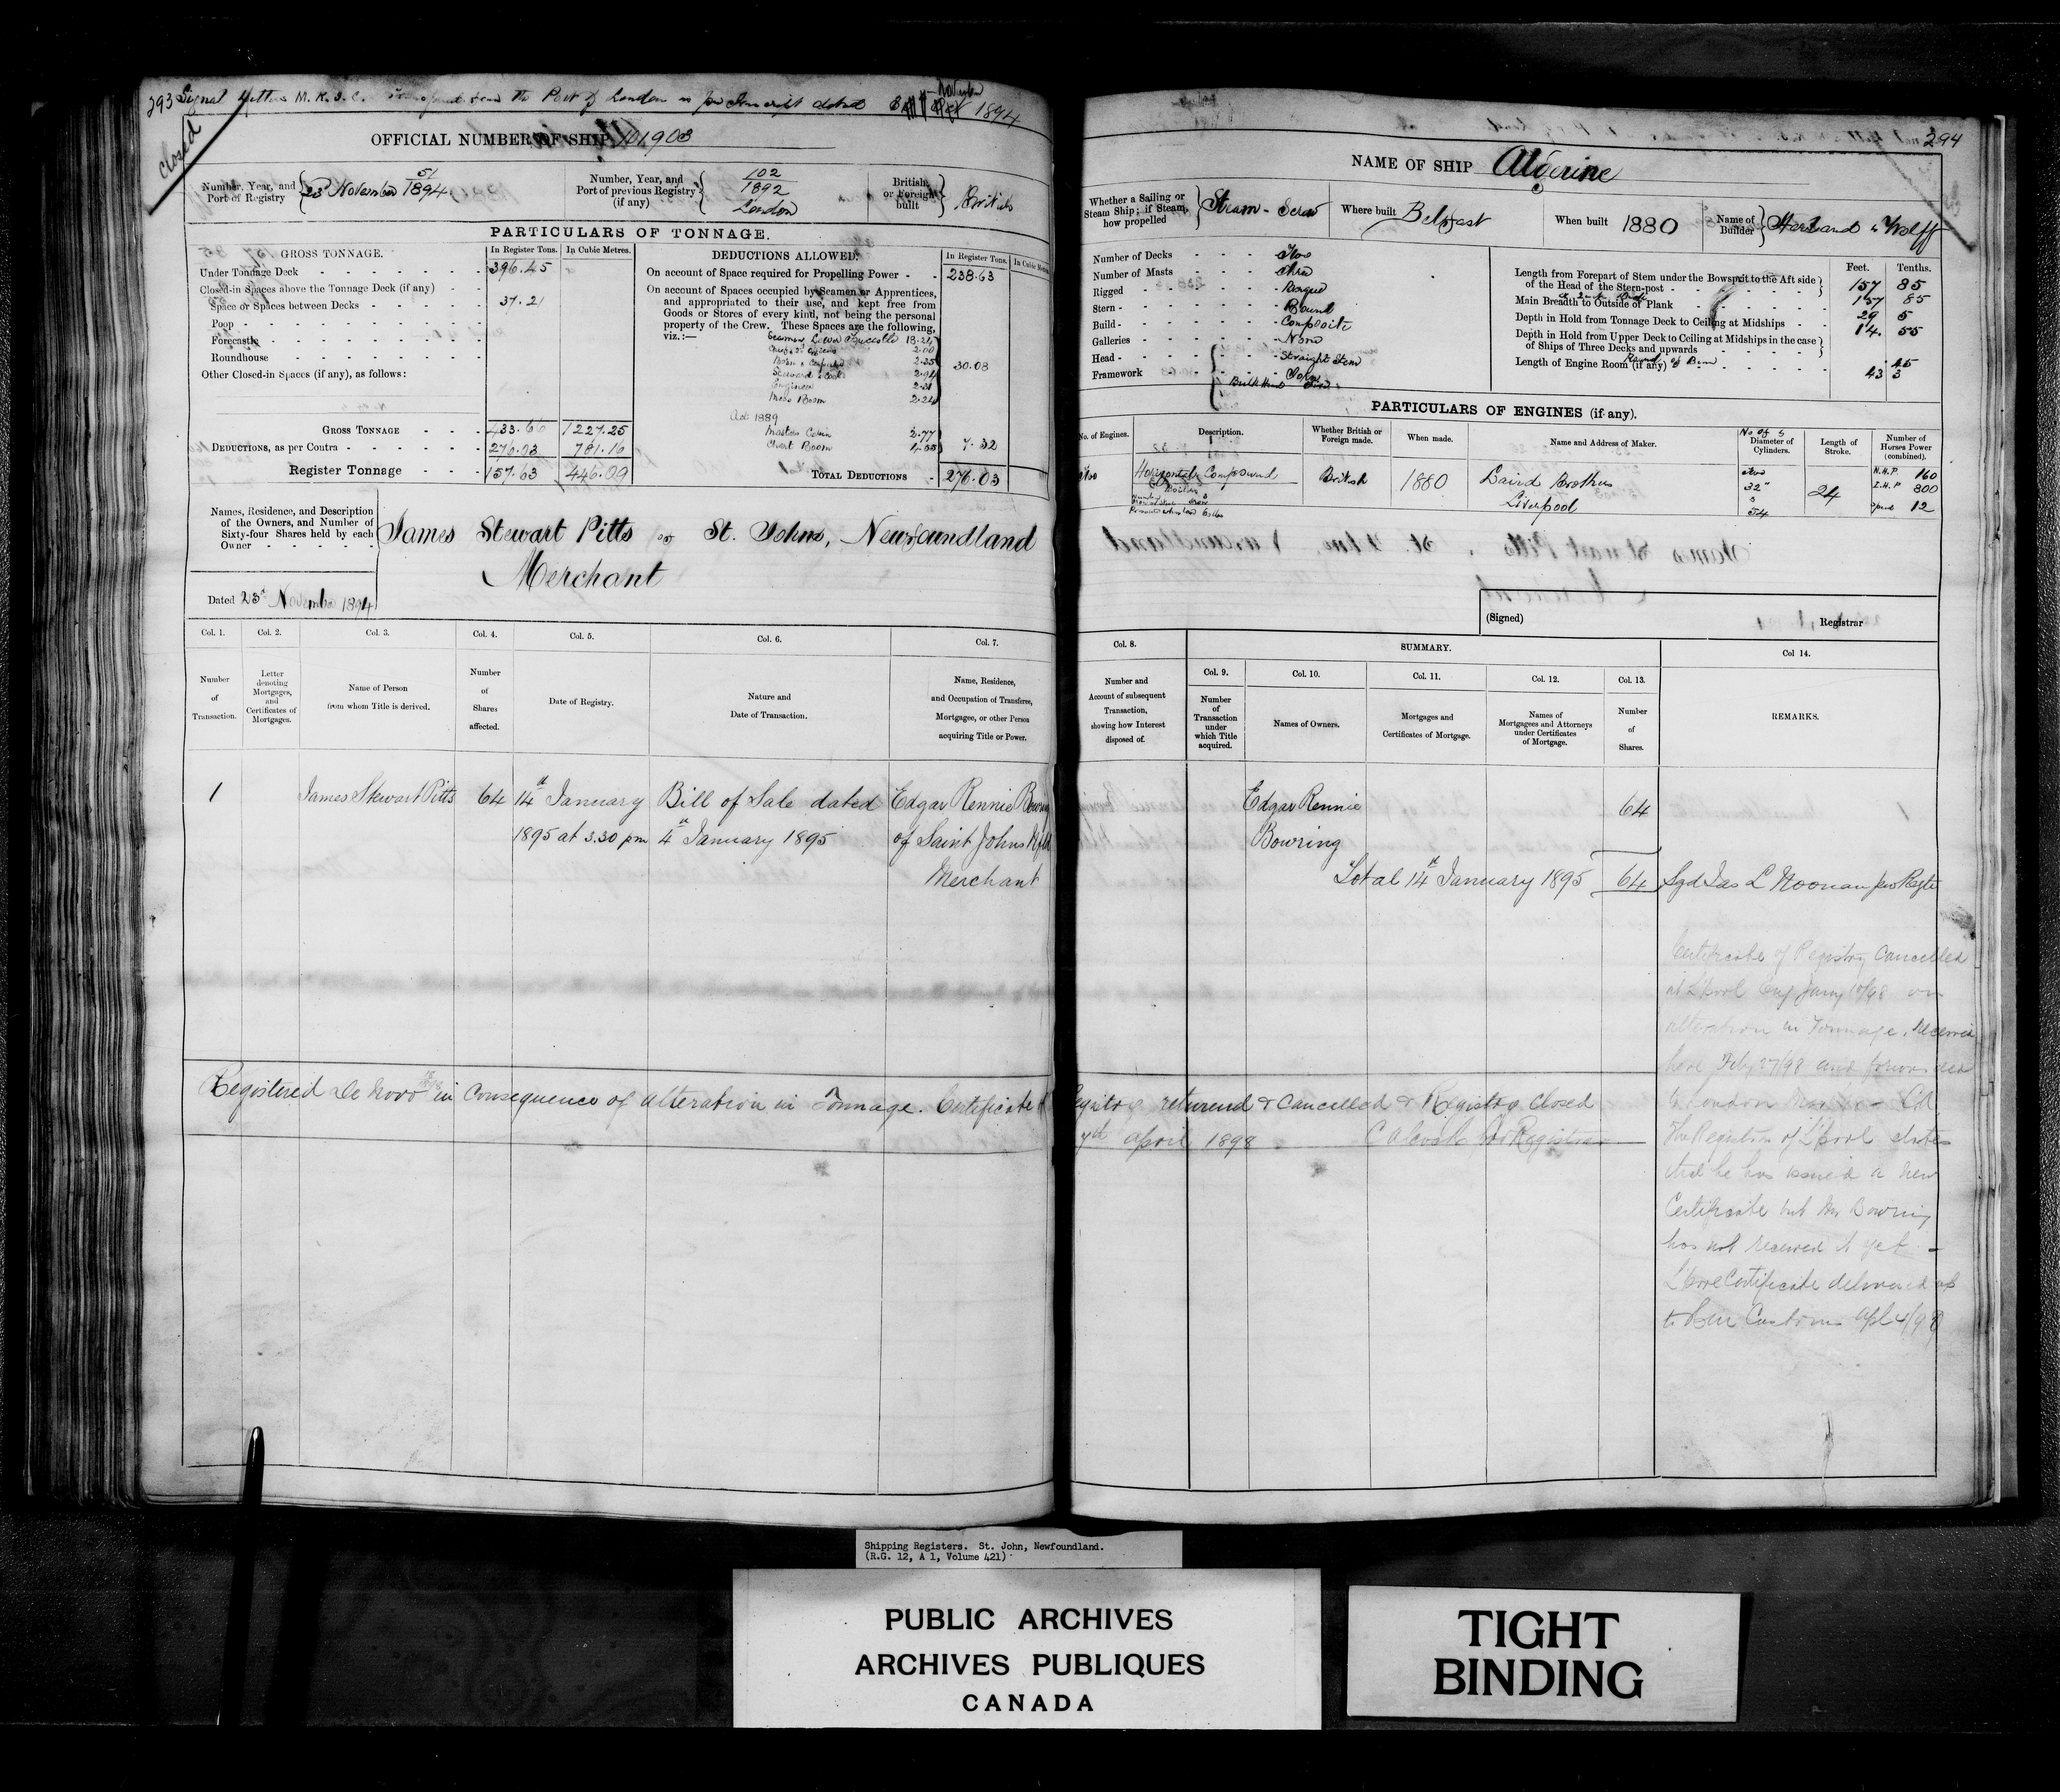 293 Signal Letters M. K. J. C. the Port of London 1894
November
Closed
OFFICIAL NUMBER OF SHIP 101,903
Number, Year, and Port of Registry 51 23 November 1894
Number, Year, and Port of previous Registry (if any) 102 1892 London
British or Foreign built British
PARTICULARS OF TONNAGE.
GROSS TONNAGE. In Register Tons. In Cubic Metres.
Under Tonnage Deck 396.45
Closed-in Spaces above the Tonnage Deck (if any)
Space or Spaces between Decks 37.21
Poop
Forecastle
Roundhouse
Other Closed-in Spaces (if any), as follows:
GROSS TONNAGE 433.66 1227.25
DEDUCTIONS, as per Contra 276.03 781.16
Register Tonnage 157.63 446.09
DEDUCTIONS ALLOWED. In Register Tons. In Cubic Metres
On account of Space required for Propelling Power 238.63
On account of Spaces occupied by Seamen or Apprentices,
and appropriated to their use, and kept free from
Goods or Stores of every kind, not being the personal
property of the Crew. These Spaces are the following,
viz.:—
Seamen Lower Forecastle 18.24
2.00
2.35
Steward & Cook 2.94
Engineer 2.31
Mess Room 2.24
30.08
Act 1889
Masters Cabin 2.77
Chart Room 4.55
7.32
TOTAL DEDUCTIONS 276.03
Names, Residence, and Description
of the Owners, and Number of
Sixty-four Shares held by each
Owner
James Stewart Pitts of St. Johns, Newfoundland
Merchant
Dated 23d November 1894
Col. 1. Col. 2. Col. 3. Col. 4. Col. 5. Col. 6. Col. 7.
Number of Transaction.
Letter denoting Mortgages, and Certificates of Mortgages.
Name of Person from whom Title is derived.
Number of Shares affected.
Date of Registry.
Nature and Date of Transaction.
Name, Residence, and Occupation of Transferee, Mortgagee, or other Person acquiring Title or Power.
1 James Stewart Pitts 64 14th January Bill of Sale dated Edgar Rennie Bowring
1895 at 3.30 pm 4th January 1895 of Saint Johns Nfld
Merchant
Registered De Novo in consequence of alteration in Tonnage. Certificate of
294
NAME OF SHIP Algerine
Whether a Sailing or Steam Ship; if Steam, how propelled Steam - Screw
Where built Belfast
When built 1880
Name of Builder Harland & Wolff
Number of Decks Two
Number of Masts Three
Rigged Barque
Stern Round
Build Composite
Galleries None
Head Straight Stem
Framework Iron
Bulk Heads
Feet. Tenths.
Length from Forepart of Stem under the Bowsprit to the Aft side
of the Head of the Stern-post 157 85
157 85
Main Breadth to Outside of Plank 29 5
Depth in Hold from Tonnage Deck to Ceiling at Midships 14. 55
Depth in Hold from Upper Deck to Ceiling at Midships in the case
of Ships of Three Decks and upwards
Round of Beam 45
Length of Engine Room (if any) 43 3
PARTICULARS OF ENGINES (if any).
No. of Engines. Description. Whether British or Foreign made. When made. Name and Address of Maker. No of & Diameter of Cylinders. Length of Stroke. Number of Horses Power (combined).
Two Horizontal Compound British 1880 Laird Brothers
Liverpool
Two
32"
54
24
N.H.P. 160
I.H.P 300
Speed 12
(Signed) Registrar
Col. 8. SUMMARY. Col 14.
Number and Account of subsequent Transaction, showing how Interest disposed of.
Col. 9. Col. 10. Col. 11. Col. 12. Col. 13.
Number of Transaction under which Title acquired.
Names of Owners.
Mortgages and Certificates of Mortgage.
Names of Mortgagees and Attorneys under Certificates of Mortgage.
Number of Shares.
REMARKS.
Edgar Rennie 64
Bowring
Total 14th January 1895 64 Sgd Jas L Noonan pro Regtr
Certificate of Registry Cancelled
at L'pool Eng Jany 10/98 on
alteration in Tonnage. Received
here Feby 27/98 and forwarded
to London
The Registrar of L'pool states
that he has issued a new
Certificate but Mr Bowring
has not received it yet —
L'pool Certificate delivered up
to Customs Apl 4/98
Registry returned & Cancelled & Registry Closed
7th April 1898 Registrar
Shipping Registers. St. John, Newfoundland.
(R.G. 12, A 1, Volume 421)
PUBLIC ARCHIVES
ARCHIVES PUBLIQUES
CANADA
TIGHT
BINDING